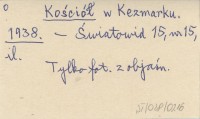 o
Kościół w Kezmarku.
1938. – Światowid 15, nr 15,
il.
Tylko fot. z objaśn.